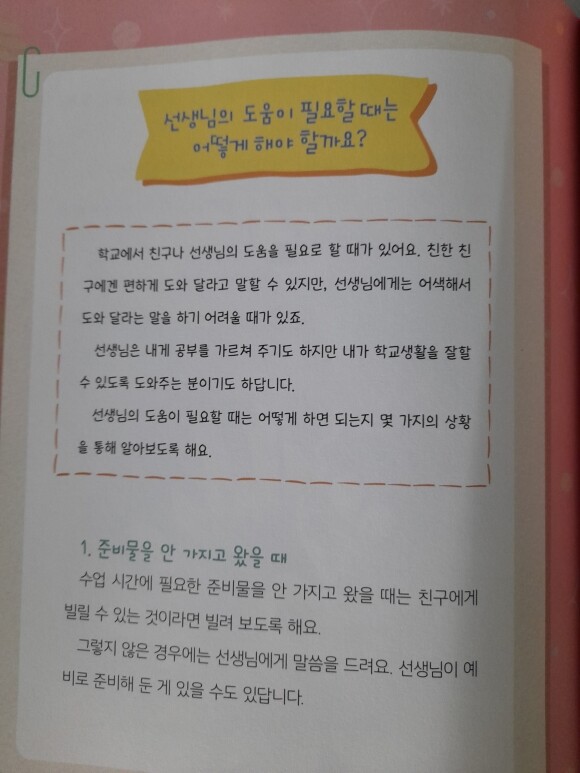 선생님의 도움이 필요할 때는
어떻게 해야 할까요?
학교에서 친구나 선생님의 도움을 필요로 할 때가 있어요. 친한 친
구에겐 편하게 도와 달라고 말할 수 있지만, 선생님에게는 어색해서
도와 달라는 말을 하기 어려울 때가 있죠.
선생님은 내게 공부를 가르쳐 주기도 하지만 내가 학교생활을 잘할
수 있도록 도와주는 분이기도 하답니다.
선생님의 도움이 필요할 때는 어떻게 하면 되는지 몇 가지의 상황
을 통해 알아보도록 해요.
1. 준비물을 안 가지고 왔을 때
수업 시간에 필요한 준비물을 안 가지고 왔을 때는 친구에게
빌릴 수 있는 것이라면 빌려 보도록 해요.
그렇지 않은 경우에는 선생님에게 말씀을 드려요. 선생님이 예
비로 준비해 둔 게 있을 수도 있답니다.